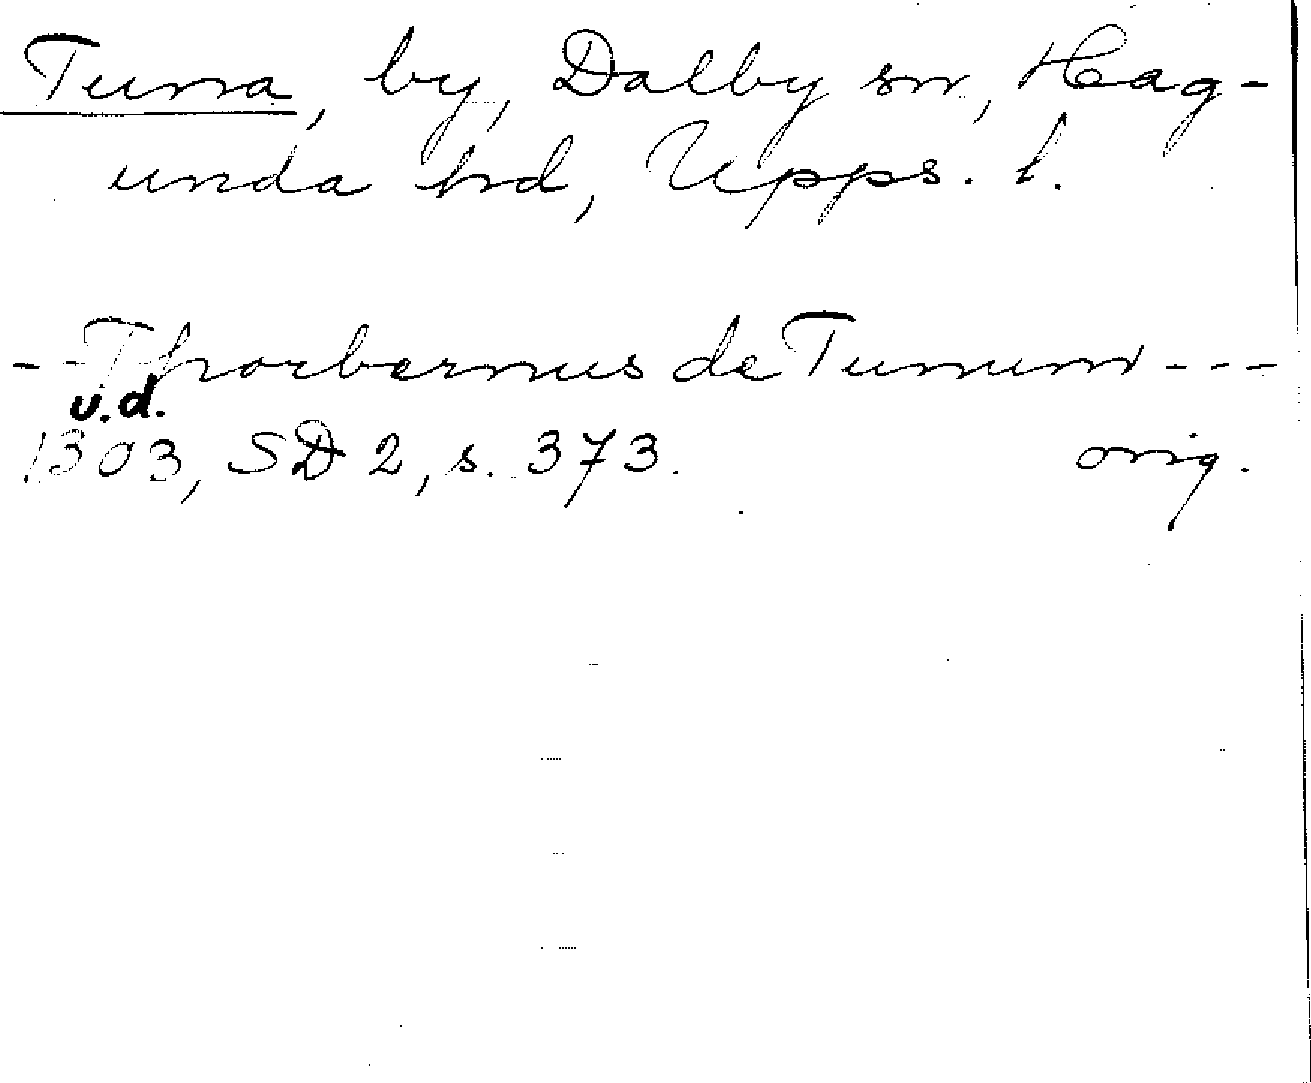 Tuna, by, Dalby sn, Hag-
unda hd, Upps. l.
- - Thorbernus de Tunum - - -
u.d.
1303, SD 2, s. 373. orig.